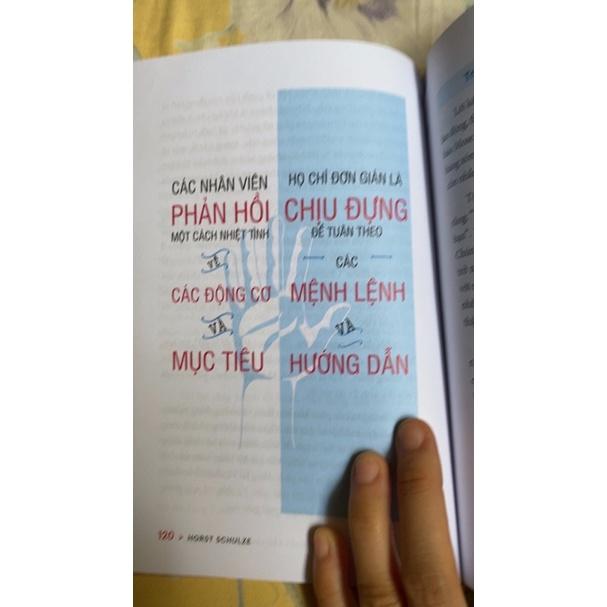 CÁC NHÂN VIÊN
PHẢN HỒI
MỘT CÁCH NHIỆT TÌNH
VỀ
CÁC ĐỘNG CƠ
VÀ
MỤC TIÊU
HỌ CHỈ ĐƠN GIẢN LÀ
CHỊU ĐỰNG
ĐỂ TUÂN THEO
CÁC
MỆNH LỆNH
VÀ
HƯỚNG DẪN
120 • HORST SCHULZE